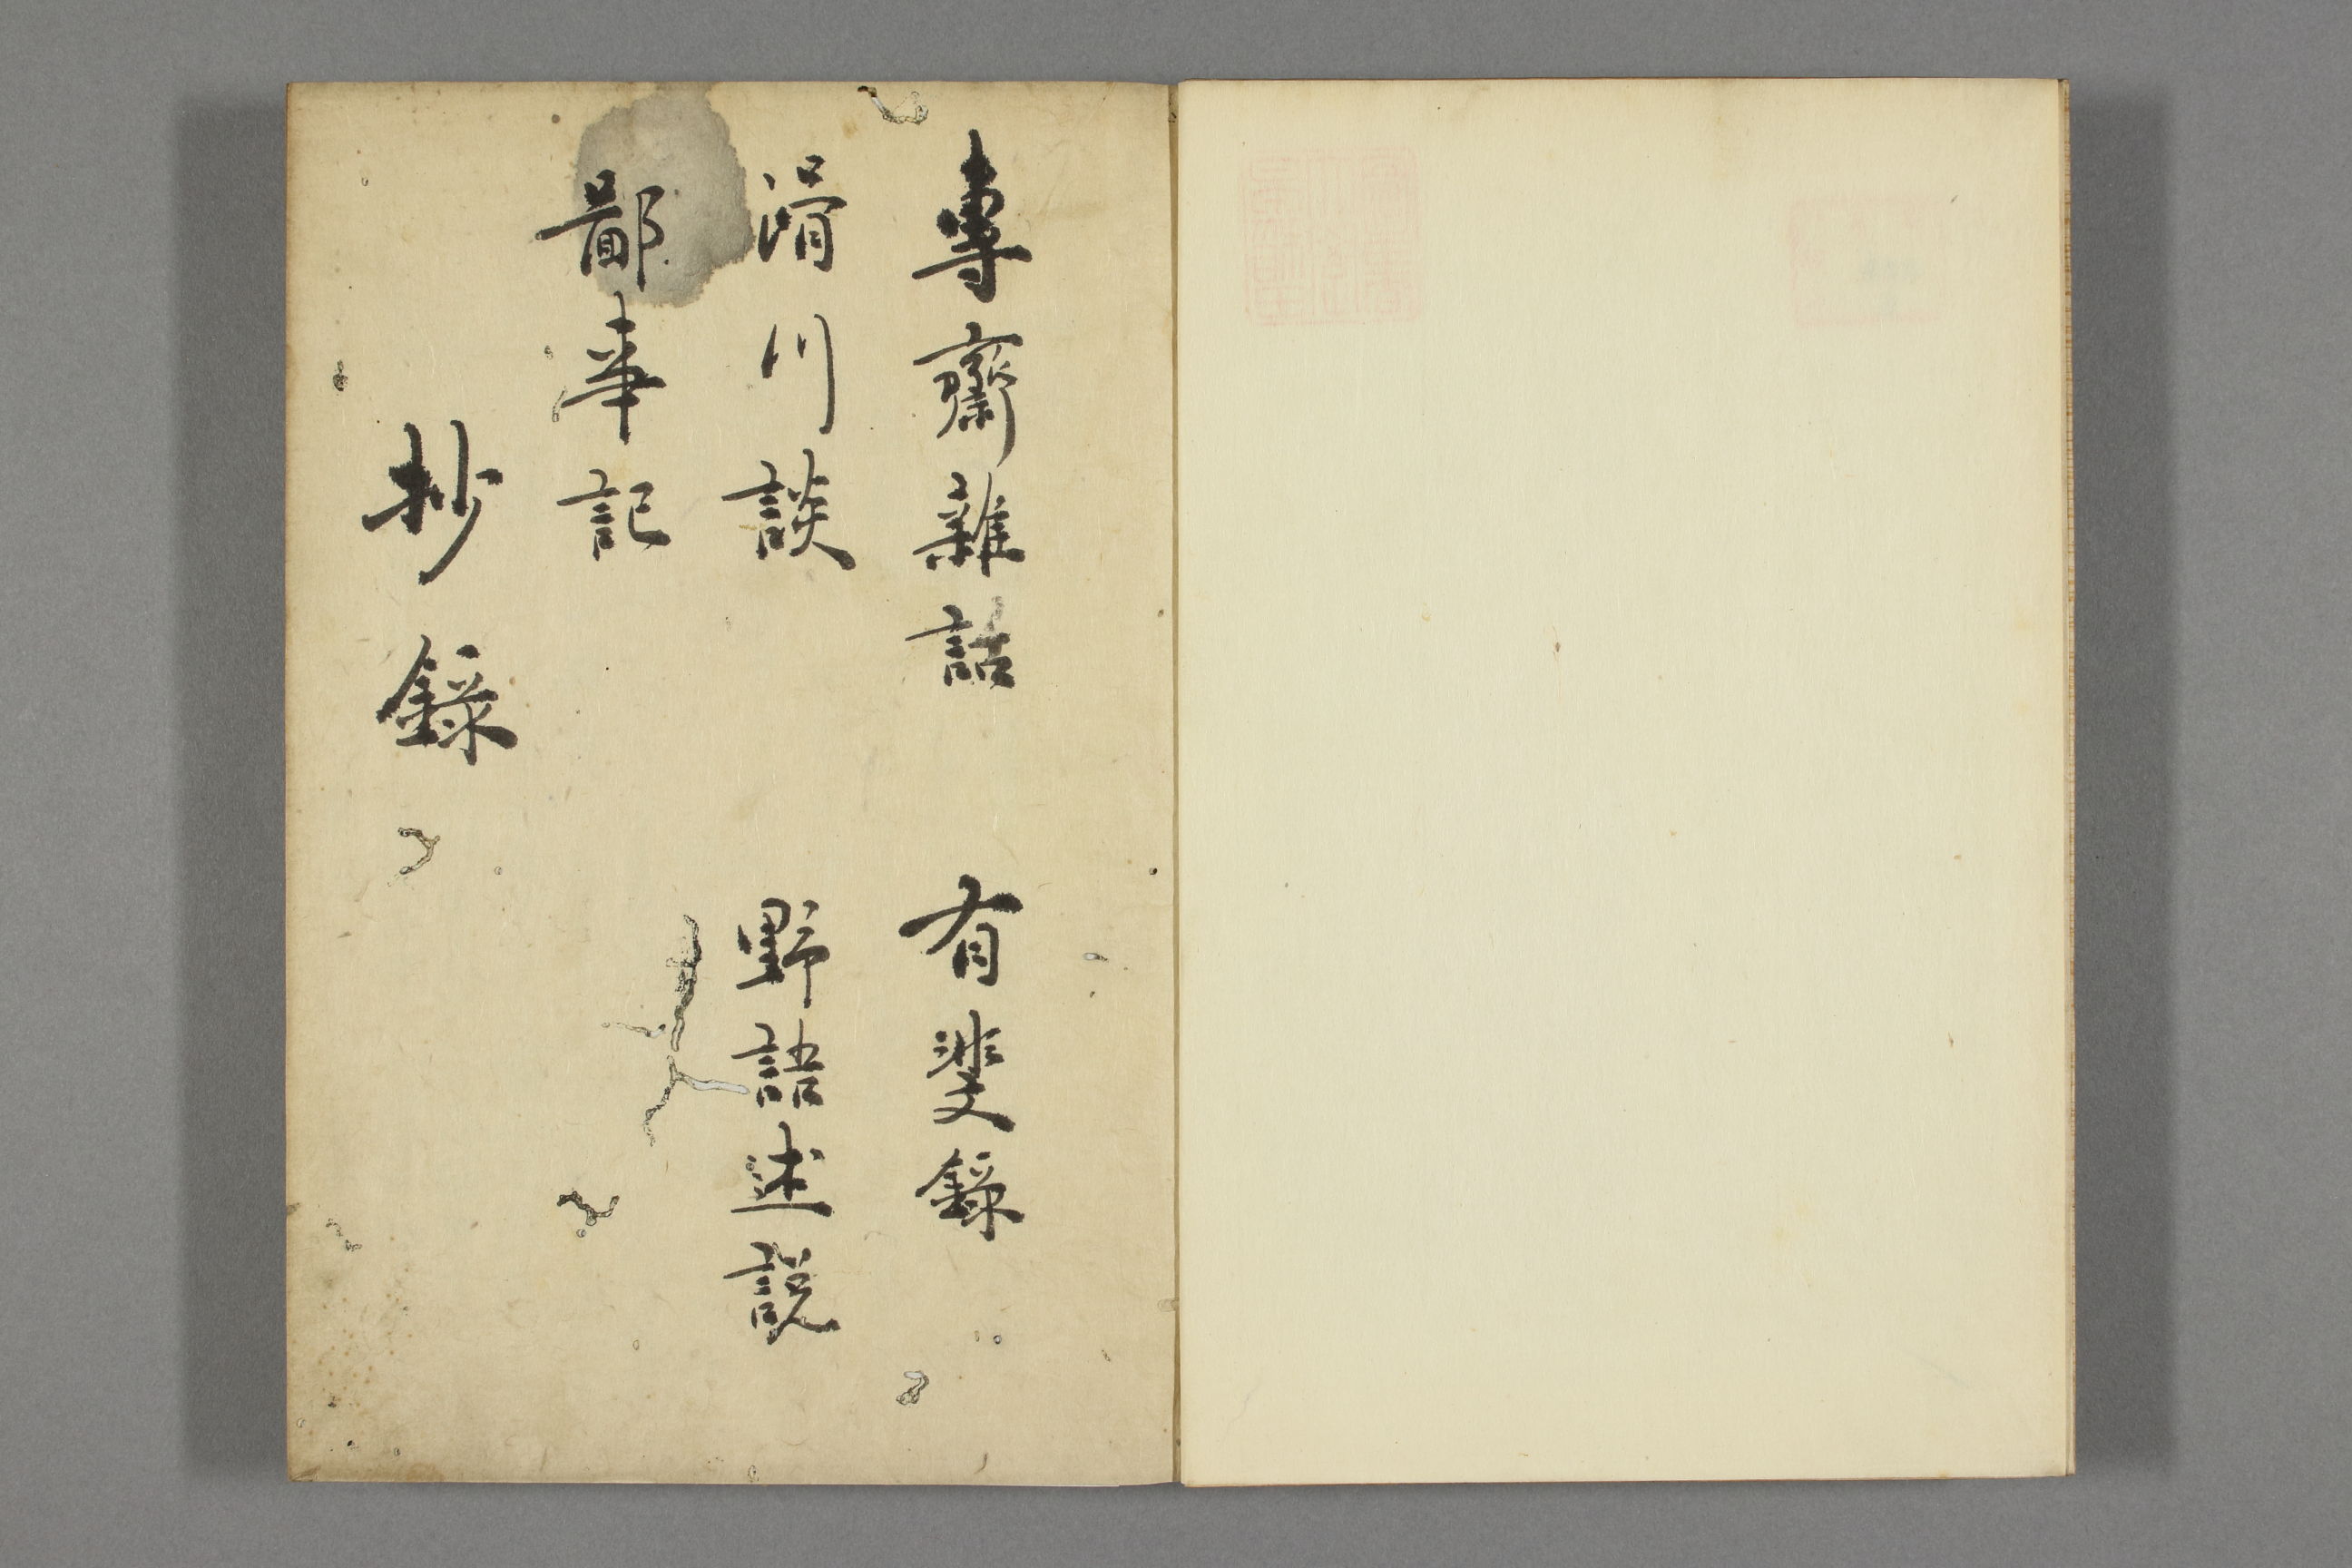 專齋雜話　有斐錄
滑川談　野語述說
鄙事記
抄錄